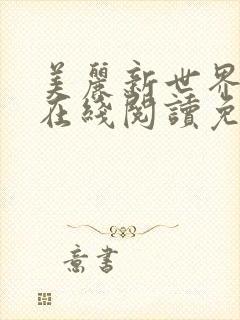 美麗新世界
在綫閱讀免
意書